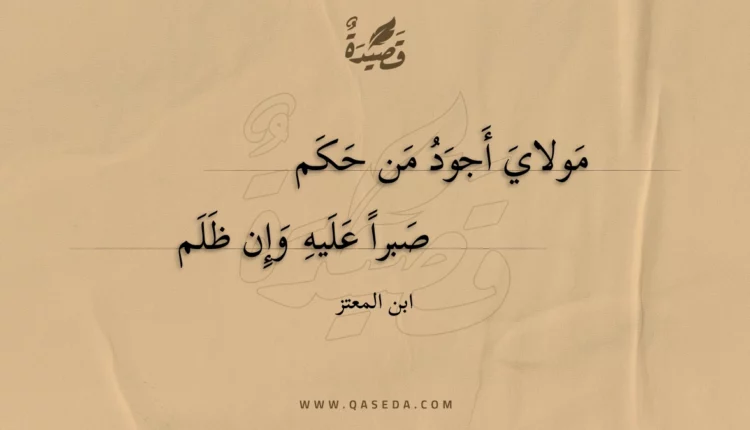 قَصِيْدَةٌ
مَولايَ أَجوَدُ مَن حَكَم
صَبراً عَلَيهِ وَإِن ظَلَم
ابن المعتز
WWW.QASEDA.COM